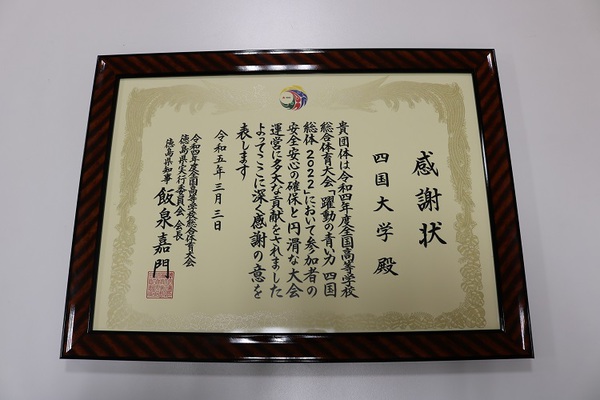 感謝状
四国大学 殿
貴団体は令和四年度全国高等学校
総合体育大会「躍動の青い力 四国
総体2022」において参加者の
安全安心の確保と円滑な大会
運営に多大な貢献をされました
よってここに深く感謝の意を
表します
令和五年三月三日
令和四年度全国高等学校総合体育大会
徳島県実行委員会 会長
徳島県知事 飯泉嘉門